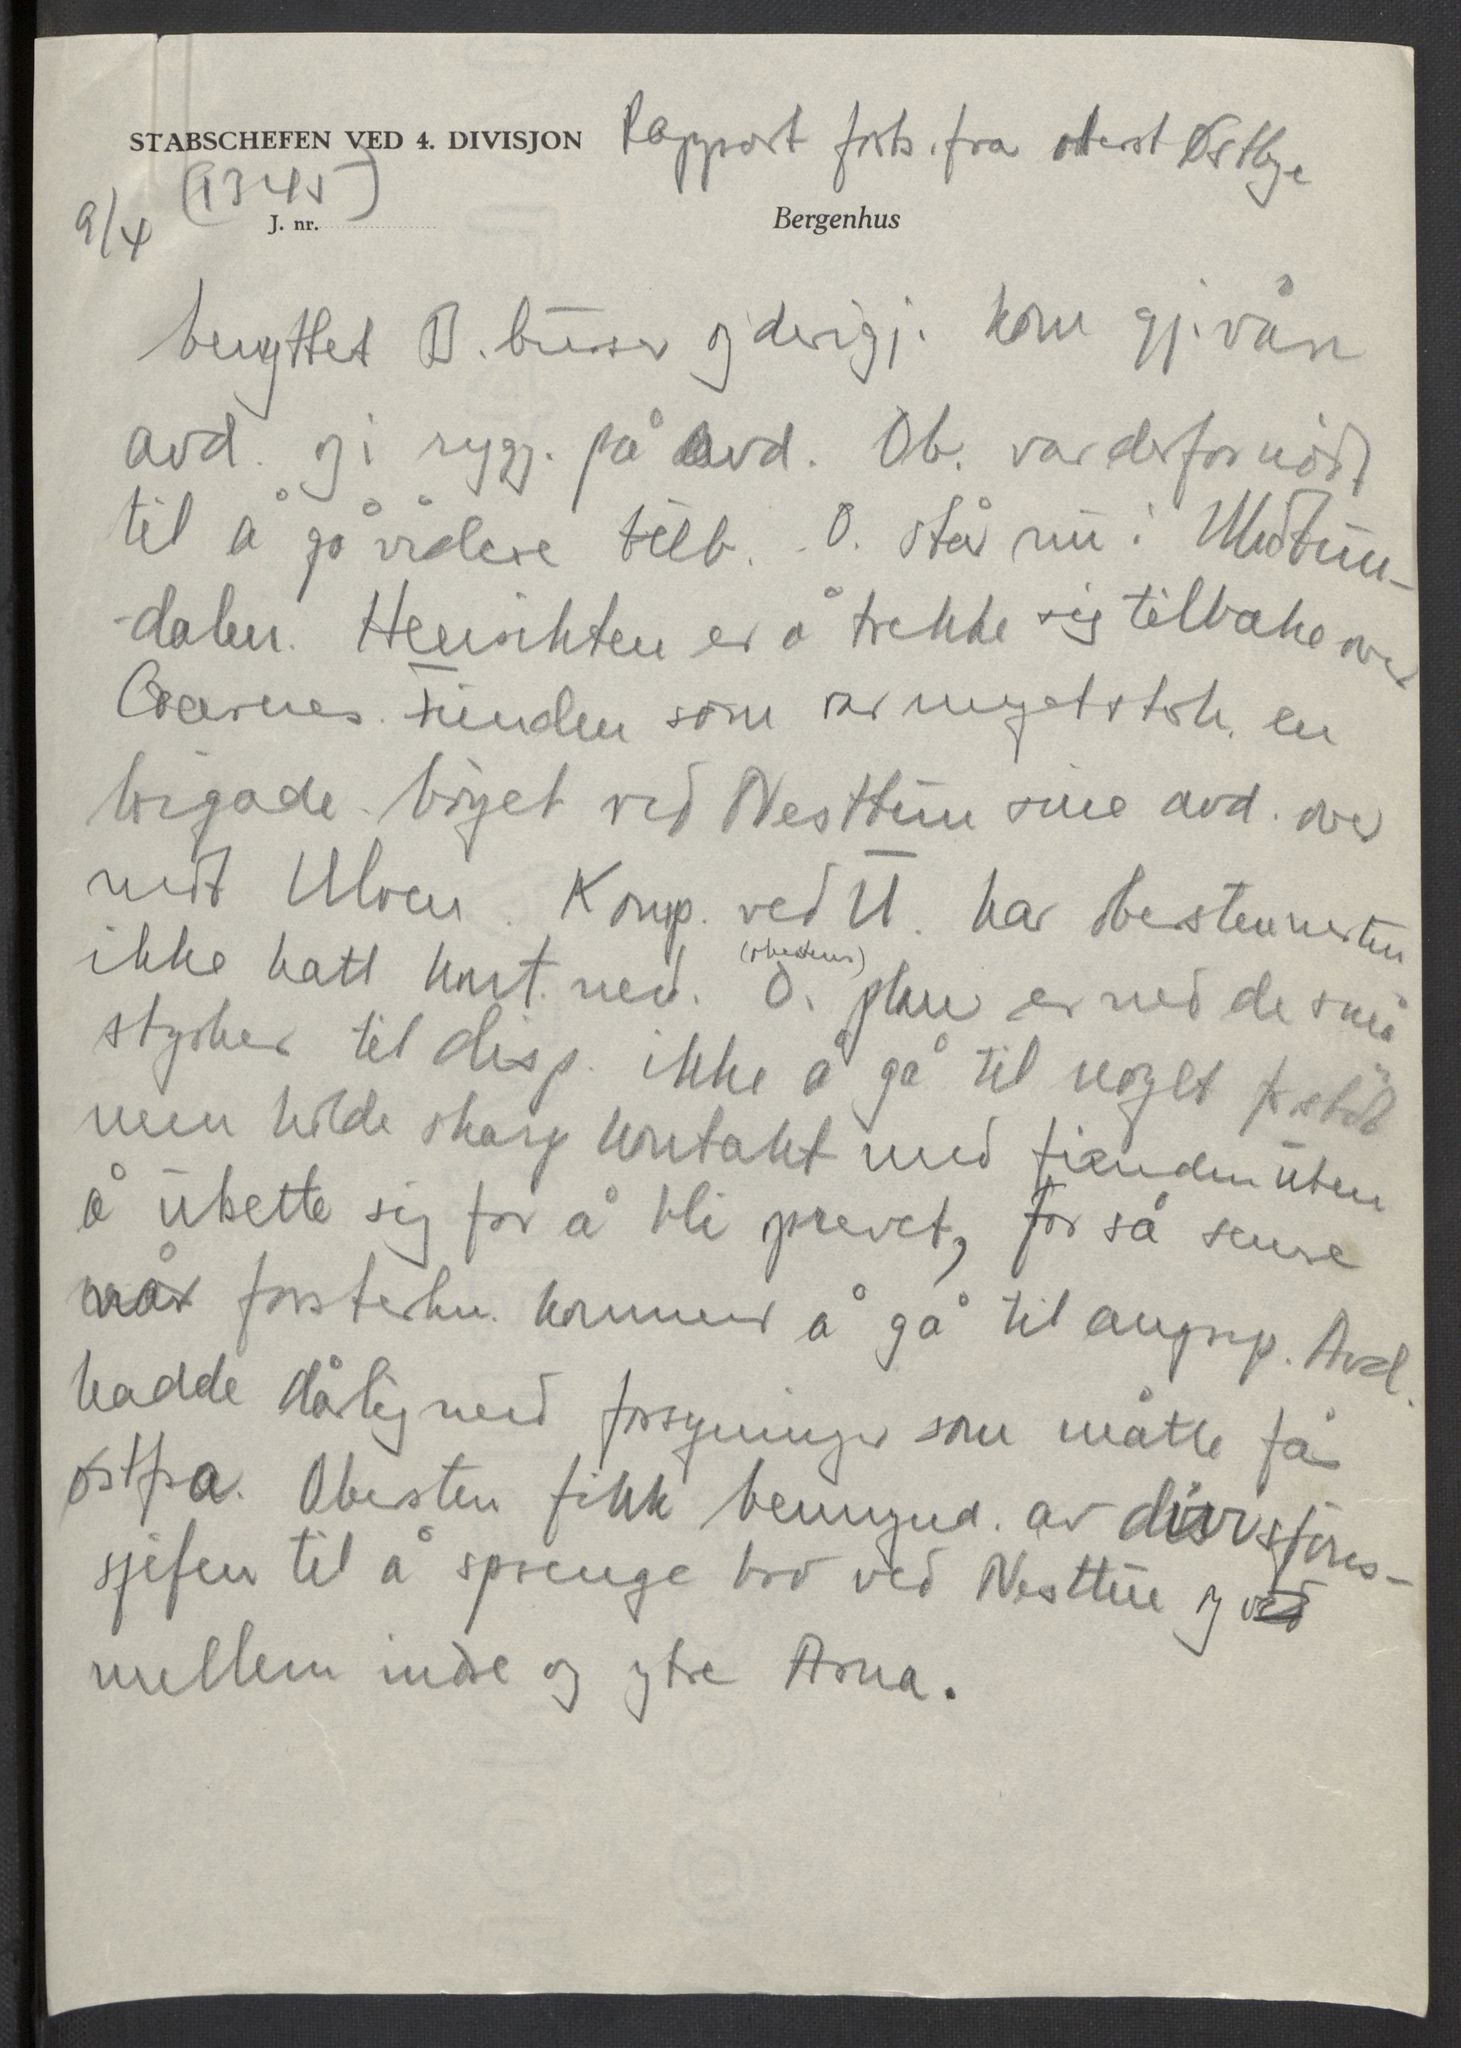 STABSCHEFEN VED 4. DIVISJON Rapport forts. fra oberst Østbye
9/4 (1345)
J. nr. Bergenhus
benyttet B. busser og derigj. kom gj. vårn
avd. og i rygg. på avd. Ob. var derfor nødt
til å gå videre tilb. O. står nu i Midttun-
-dalen. Hensikten er å trekke sig tilbake over
Gaarnes. Fienden som var meget sterk. en
brigade. bøyet ved Nesttun sine avd. over
mot Ulven. Komp. ved U. har obersten nesten
ikke hatt kont. med. (oberstens) O. plan er med de små
styrker til disp. ikke å gå til noget fr.støt
men holde skarp kontakt med fienden uten
å utsette sig for å bli prevet, for så senere
når forsterkn. kommer å gå til angrep. Avd.
hadde dårlig med forsyninger som måtte fås
østfra. Obersten fikk bemynd. av divisjons-
sjefen til å sprenge bro ved Nesttun og ved
mellem indre og ytre Arna.